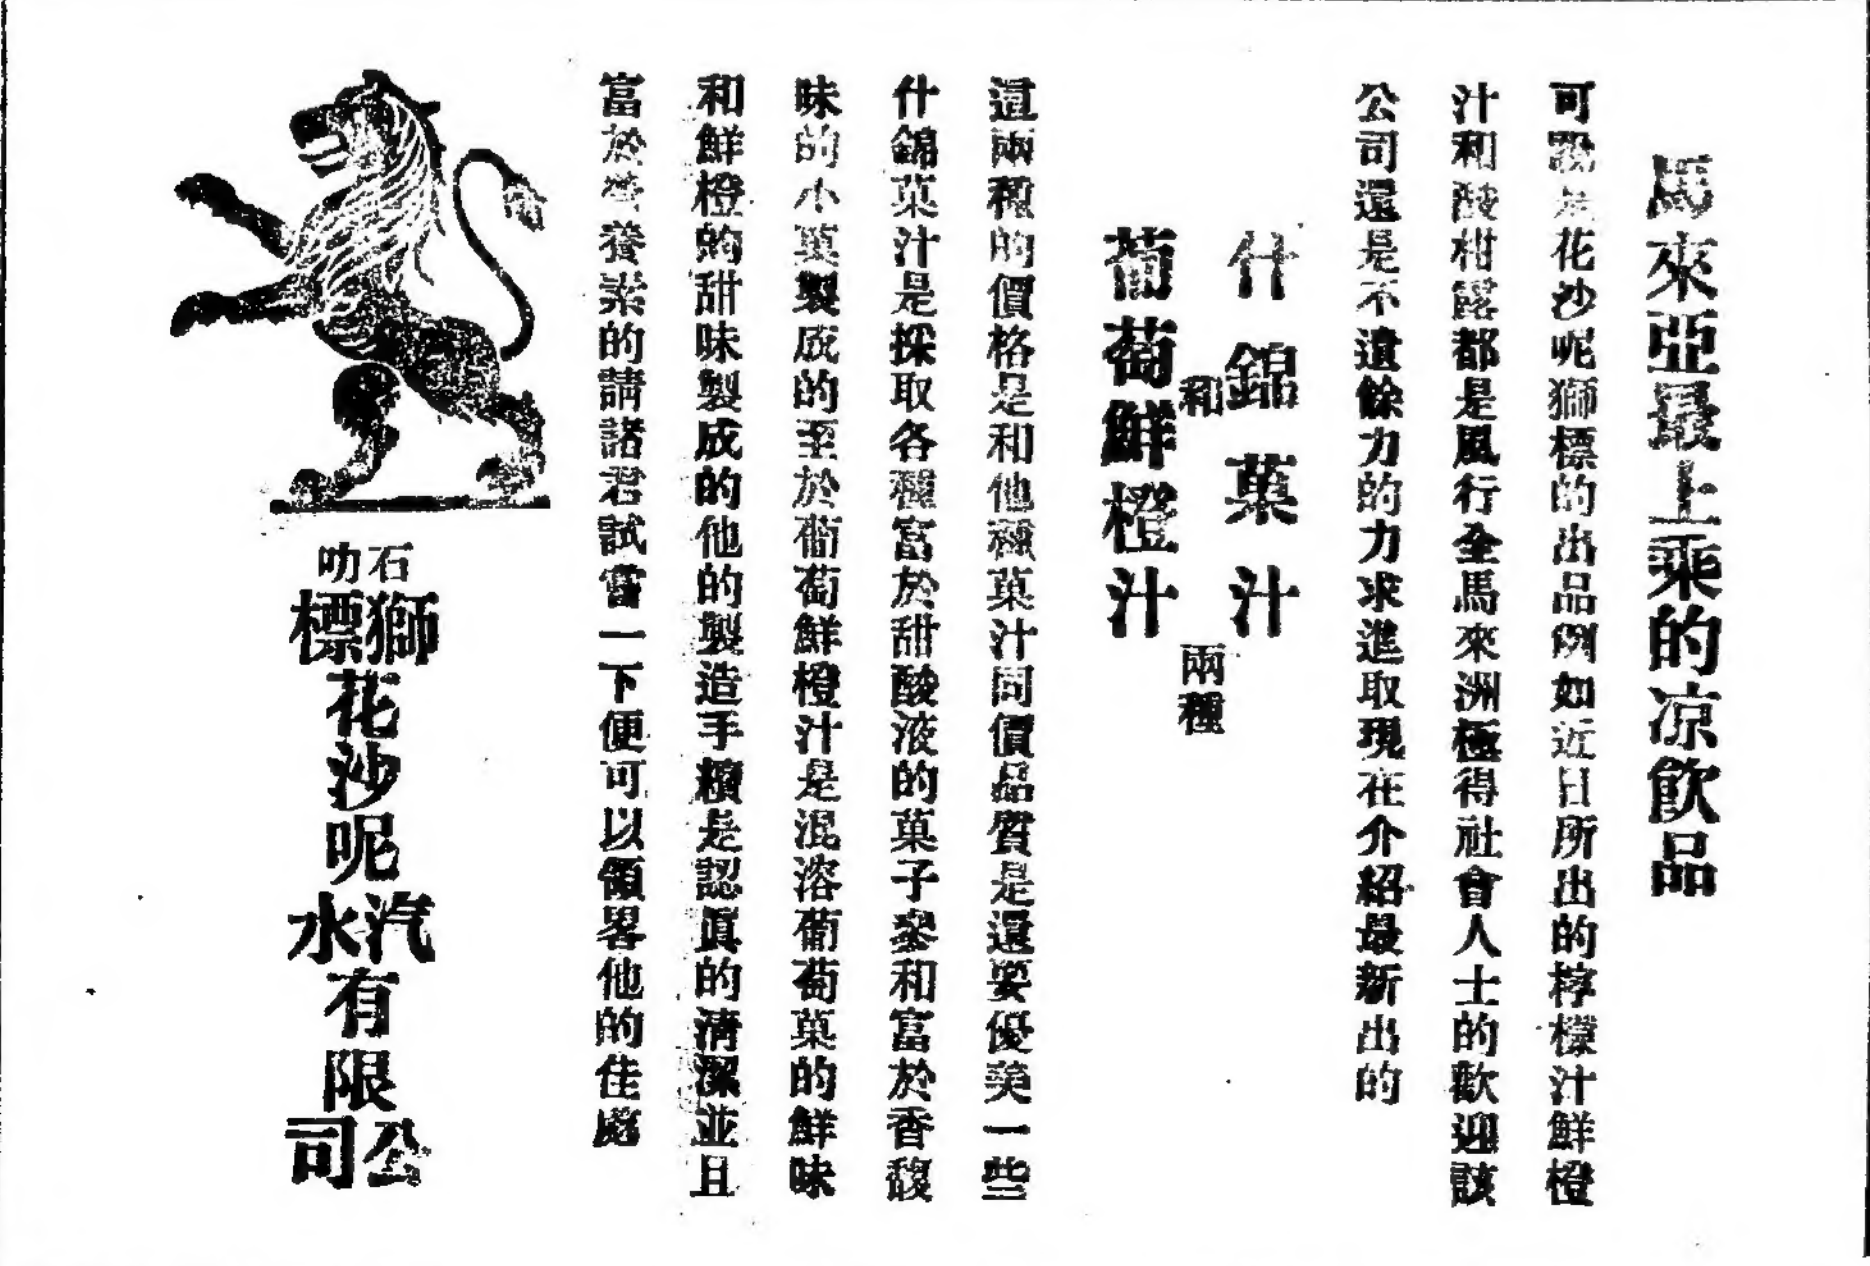 馬來亞最上乘的凉飲品
可說是花沙呢獅標的出品例如近日所出的檸檬汁鮮橙
汁和酸柑露都是風行全馬來洲極得社會人士的歡迎該
公司還是不遺餘力的力求進取現在介紹最新出的
什錦菓汁
和
葡萄鮮橙汁
兩種
這兩種的價格是和他種菓汁同價品質是還要優美一些
什錦菓汁是採取各種富於甜酸液的菓子參和富於香馥
味的小菓製成的至於葡萄鮮橙汁是混溶葡萄菓的鮮味
和鮮橙的甜味製成的他的製造手續是認眞的清潔並且
富於營養素的請諸君試嘗一下便可以領畧他的佳處
石叻
獅標
花沙呢
汽水
有限
公司